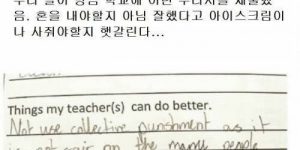 음. 혼을 내야할지 아님 잘했다고 아이스크림이
나 사줘야할지 햇갈린다...
Things my teacher(s) can do better.
Not use collective punishment as it
is not fair on the many people